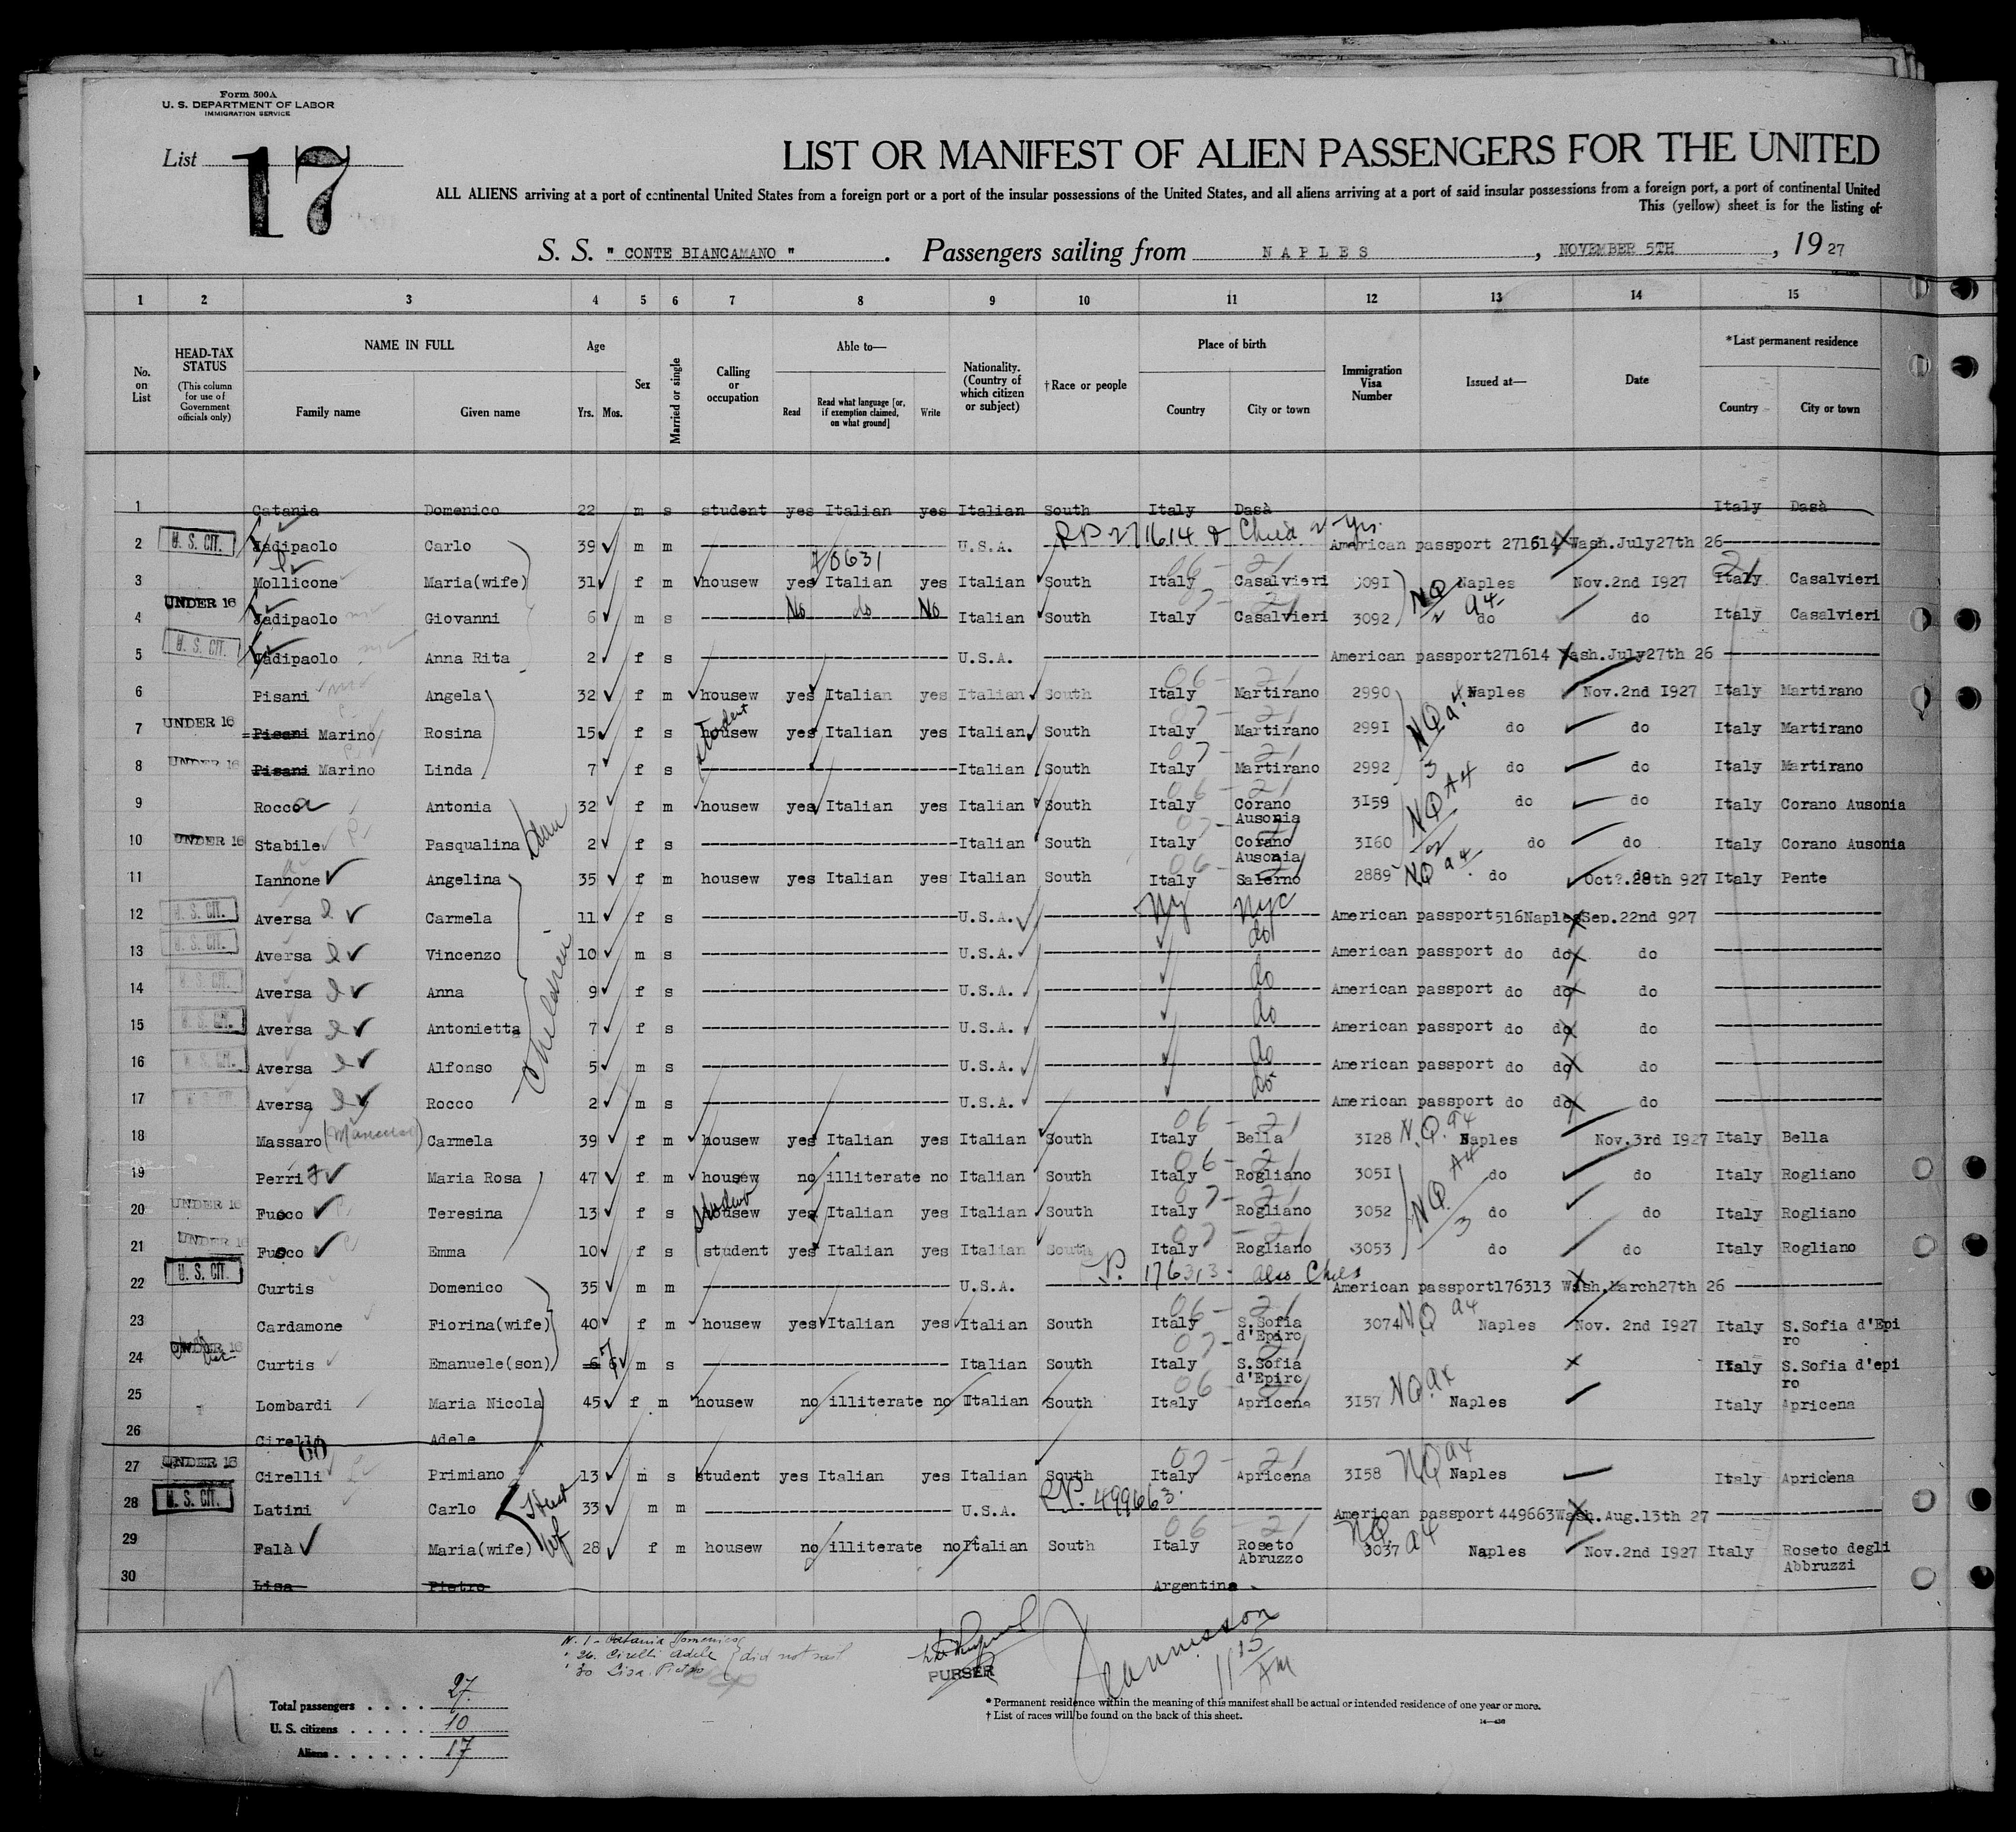 Form 500A
U. S. DEPARTMENT OF LABOR
IMMIGRATION SERVICE
List 17
LIST OR MANIFEST OF ALIEN PASSENGERS FOR THE UNITED
ALL ALIENS arriving at a port of continental United States from a foreign port or a port of the insular possessions of the United States, and all aliens arriving at a port of said insular possessions from a foreign port, a port of continental United
This (yellow) sheet is for the listing of
S. S. " CONTE BIANCAMANO " . Passengers sailing from NAPLES , NOVEMBER 5TH , 19 27
1 2 3 4 5 6 7 8 9 10 11 12 13 14 15
No. on List
HEAD-TAX STATUS (This column for use of Government officials only)
NAME IN FULL
Family name Given name
Age
Yrs. Mos.
Sex
Married or single
Calling or occupation
Able to—
Read Read what language [or, if exemption claimed, on what ground] Write
Nationality. (Country of which citizen or subject)
† Race or people
Place of birth
Country City or town
Immigration Visa Number
Issued at—
Date
* Last permanent residence
Country City or town
1 Catania Domenico 22 m s student yes Italian yes Italian South Italy Dasà Italy Dasà
RP 271614 & Child 2 yrs.
2 U. S. CIT. Iadipaolo Carlo 39 m m U.S.A. American passport 271614 Wash.July27th 26
3 Mollicone Maria(wife) 31 f m housew yes Italian yes Italian South Italy Casalvieri 3091 NQ Naples Nov.2nd 1927 Italy Casalvieri
4 UNDER 16 Iadipaolo Giovanni 6 m s No do No Italian South Italy Casalvieri 3092 2 a4 do do Italy Casalvieri
5 U. S. CIT. Iadipaolo Anna Rita 2 f s U.S.A. American passport271614 Wash.July27th 26
6 Pisani Angela 32 f m housew yes Italian yes Italian South Italy Martirano 2990 Naples Nov.2nd 1927 Italy Martirano
7 UNDER 16 Pisani Marino Rosina 15 f s housew student yes Italian yes Italian South Italy Martirano 2991 NQ a4 do do Italy Martirano
8 UNDER 16 Pisani Marino Linda 7 f s Italian South Italy Martirano 2992 3 do do Italy Martirano
9 Rocco a Antonia 32 f m housew yes Italian yes Italian South Italy Corano Ausonia 3159 NQ A4 do do Italy Corano Ausonia
10 UNDER 16 Stabile Pasqualina 2 f s Italian South Italy Corano Ausonia 3160 2 do do Italy Corano Ausonia
11 Iannone Angelina 35 f m housew yes Italian yes Italian South Italy Salerno 2889 NQ a4 do Oct.28th 927 Italy Pente
12 U. S. CIT. Aversa Carmela 11 f s U.S.A. NY NYC American passport 516Naples Sep.22nd 927
13 U. S. CIT. Aversa Vincenzo 10 m s U.S.A. do American passport do do do
14 U. S. CIT. Aversa Anna 9 f s U.S.A. do American passport do do do
15 U. S. CIT. Aversa Antonietta 7 f s U.S.A. do American passport do do do
16 U. S. CIT. Aversa Alfonso 5 m s U.S.A. do American passport do do do
17 U. S. CIT. Aversa Rocco 2 m s U.S.A. do American passport do do do
Children
18 Massaro Carmela 39 f m housew yes Italian yes Italian South Italy Bella 3128 N.Q. a4 Naples Nov.3rd 1927 Italy Bella
19 Perri Maria Rosa 47 f m housew no illiterate no Italian South Italy Rogliano 3051 A4 do do Italy Rogliano
20 UNDER 16 Fusco Teresina 13 f s housew student yes Italian yes Italian South Italy Rogliano 3052 NQ 3 do do Italy Rogliano
21 UNDER 16 Fusco Emma 10 f s student yes Italian yes Italian South Italy Rogliano 3053 do do Italy Rogliano
P. 176313 - also Child
22 U. S. CIT. Curtis Domenico 35 m m U.S.A. American passport176313 Wash.March27th 26
23 Cardamone Fiorina(wife) 40 f m housew yes Italian yes Italian South Italy S.Sofia d'Epiro 3074 NQ a4 Naples Nov. 2nd 1927 Italy S.Sofia d'Epiro
24 UNDER 16 Curtis Emanuele(son) 6 m s Italian South Italy S.Sofia d'Epiro Italy S.Sofia d'epiro
25 Lombardi Maria Nicola 45 f m housew no illiterate no Italian South Italy Apricena 3157 NQ a4 Naples Italy Apricena
26 Cirelli Adele
27 UNDER 16 Cirelli Primiano 13 m s student yes Italian yes Italian South Italy Apricena 3158 NQ a4 Naples Italy Apricena
28 U. S. CIT. Latini Carlo 33 m m U.S.A. P. 499663 American passport 449663Wash.Aug.13th 27
29 Falà Maria(wife) 28 f m housew no illiterate no Italian South Italy Roseto Abruzzo 3037 NQ a4 Naples Nov.2nd 1927 Italy Roseto degli Abbruzzi
30 Lisa Pietro Argentina
N. 1 - Catania Domenico
" 26. Cirelli Adele } did not sail
" 30 Lisa Pietro
PURSER
11 15 AM
Total passengers 27
U. S. citizens 10
Aliens 17
* Permanent residence within the meaning of this manifest shall be actual or intended residence of one year or more.
† List of races will be found on the back of this sheet.